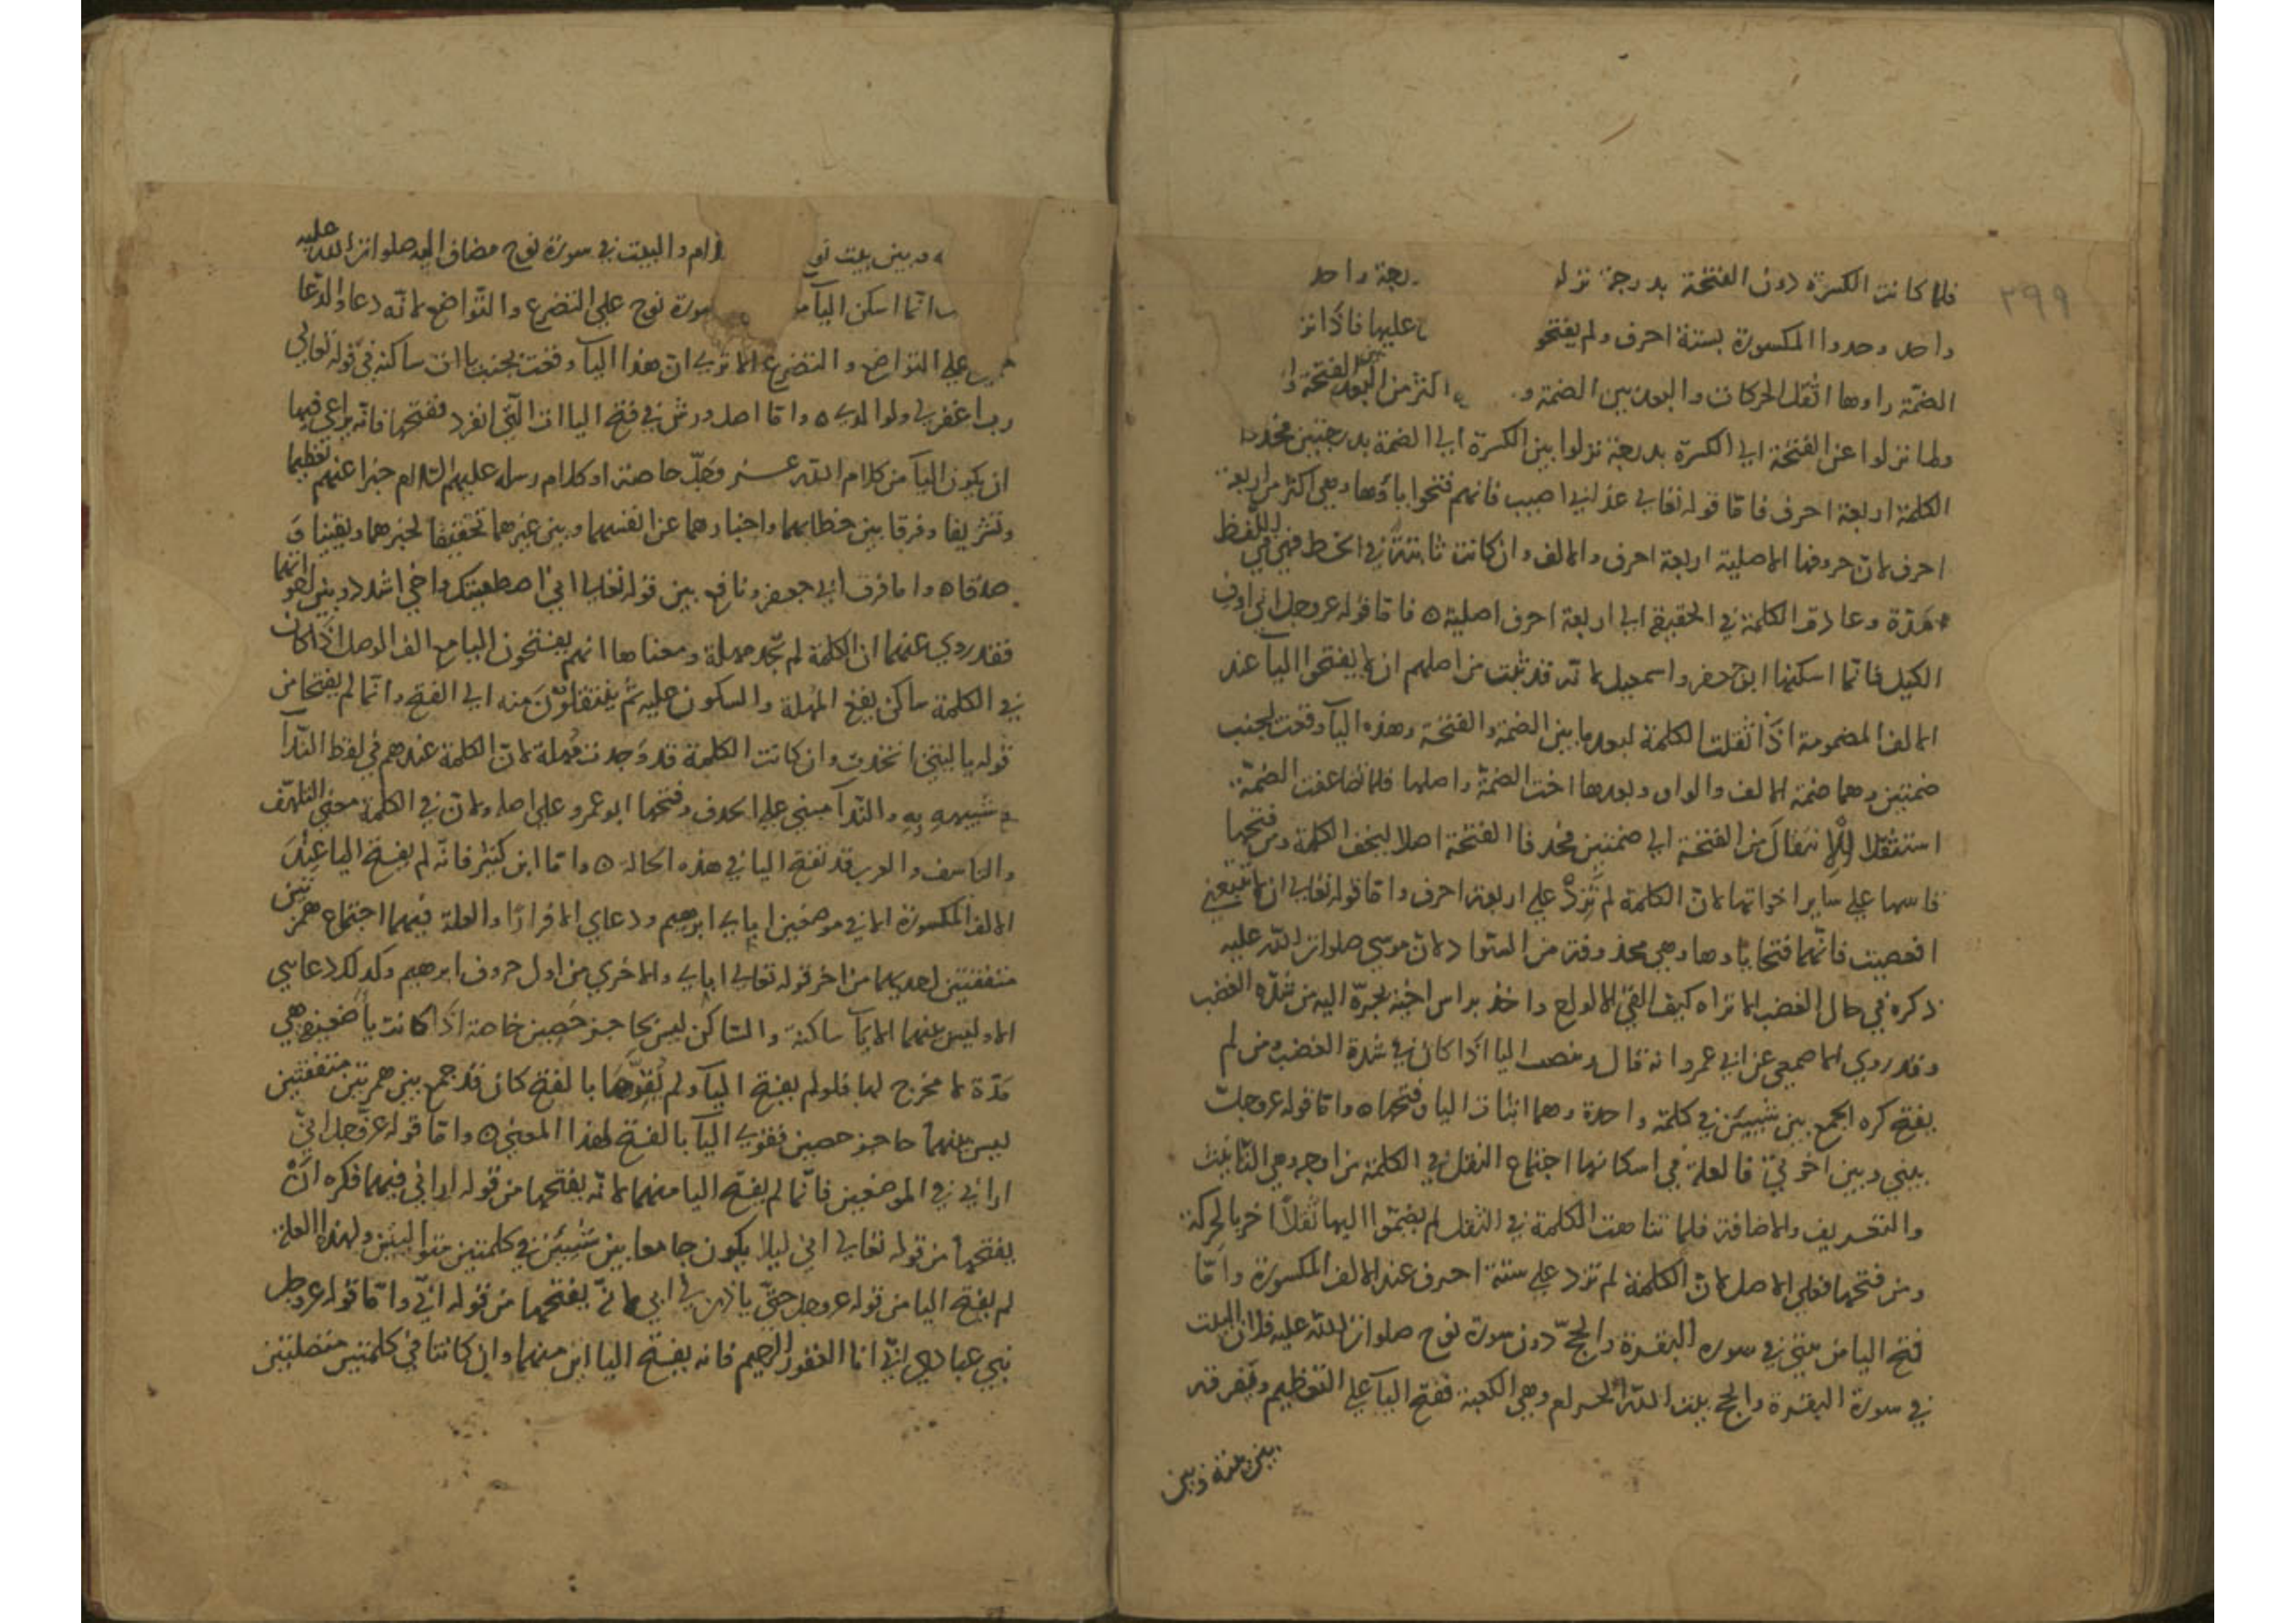 ٢٩٩
فلما كانت الكسرة دون الفتحة بدرجة نزلو رجة واحد
واحد وحدوا المكسورة بستة احرف ولم يفتحو عليها فاذا نز
الضمة راوها اثقل الحركات والبعد بين الضمة و اكثر من البعد بين الفتحة وا
ولما نزلوا عن الفتحة الى الكسرة بدرجة نزلوا بين الكسرة الى الضمة بدرجتين فحدوا
الكلمة اربعة احرف فاما قوله تعالى عذابي اصيب فانهم فتحوا ياؤها وهي اكثر من اربعة
احرف لان حروفها الاصلية اربعة احرف والالف وان كانت ثابتة في الخط فهي في اللفظ
مدّة وعادت الكلمة في الحقيقة الى اربعة احرف اصلية ه فاما قوله عز وجل اني اوف
الكيل فانما اسكنها ابو جعفر واسمعيل لانه قد ثبت من اصلهم ان لا يفتحوا اليآ عند
الالف المضمومة اذا ثقلت الكلمة لبعد ما بين الضمة والفتحة وهذه اليآ وقعت بجنب
ضمتين وهما ضمة الالف والواو وبعدها اخت الضمة واصلها فلما تضاعفت الضمة
استثقلا الانتقال من الفتحة الى ضمتين فحذفا الفتحة اصلا ليخف الكلمة ومن فتحها
قاسها على ساير اخواتها لان الكلمة لم تزد على اربعة احرف واما قوله تعالى ان لا تتبعني
افعصيت فانهما فتحا ياوها وهي محذوفة من السواد لان موسى صلوات الله عليه
ذكره في حال الغضب الا تراه كيف القى الالواح واخذ براس اخيه يجره اليه من شدة الغضب
وقد روي الاصمعي عن ابي عمرو انه قال اليا اذا كان في شدة الغضب ومن لم
يفتح كره الجمع بين شيئين في كلمة واحدة وهما اثبات اليا وفتحها ه واما قوله عز وجل
بيني وبين اخوتي فالعلة في اسكانها اجتماع الثقل في الكلمة من اوجه وهي التانيث
والتعريف والاضافة فلما تناهت الكلمة في الثقل لم يضموا اليها ثقلا اخر بالحركة
ومن فتحها فعلى الاصل لان الكلمة لم تزد على ستة احرف عند الالف المكسورة واما
فتح اليا من بيتي في سورة البقرة والحج دون سورة نوح صلوات الله عليه فلان البيت
في سورة البقرة والحج بيت الله الحرام وهي الكعبة ففتح اليآ على التعظيم وتفرقة
بينه وبين
ه وبين بيت نو رام والبيت في سورة نوح مضاف اليه صلوات الله عليه
انما اسكن اليآ سورة نوح على التضرع والتواضع لانه دعا والدعا
على التواضع والتضرع الا ترى ان هذا اليآ وقعت بجنب يا ات ساكنة في قوله تعالى
رب اغفر لي ولوالدي ه واما اصل ورش في فتح الياات التي انفرد ففتحها فانه يراعي فيها
ان يكون اليآ من كلام الله عز وجل خاصة او كلام رسله عليهم السلام خبرا عنهم تعظيما
وتشريفا وفرقا بين خطابهما واخبارهما عن انفسهما وبين غيرهما تحقيقا لخبرهما ويقينا و
صدقا ه واما فرق ابي جعفر ونافع بين قوله تعالى اني اصطفيتك واخي اشدد وبين
فقد روي عنهما ان الكلمة لم تجد مهلة ومعناها انهم يفتحون اليا مع الف الوصل اذا كان
في الكلمة ساكن يقع المهلة والسكون عليه ثم ينتقلون منه الى الفتح وانما لم يفتحا من
قوله يا ليتني اتخذت وان كانت الكلمة قد وجدت مهلة لان الكلمة عندهم في لفظ الندآ
شبيهه به والندآ مبني على الحذف وفتحها ابو عمرو على اصله ولان في الكلمة معنى التلهف
والتاسف والعرب قد تفتح اليا في هذه الحالة ه واما ابن كثير فانه لم يفتح اليا عند
الالف المكسورة الا في موضعين ابآي ابرهيم ودعاي الا فرارا والعلة فيهما اجتماع همزتين
متفقتين احديهما من اخر قوله تعالى اباي والاخري من اول حروف ابرهيم وكذلك دعايي
الا وليس بينهما الا يآ ساكنة والساكن ليس بحاجز حصين خاصة اذا كانت يا ضعيفة وهي
مدّة لا مخرج لها فلو لم يفتح اليآ ولم يقوّها بالفتح كان قد جمع بين همزتين متفقتين
ليس بينهما حاجز حصين فقوى اليآ بالفتح لهذا المعنى ه واما قوله عز وجل اني
اراني في الموضعين فانما لم يفتح اليا منهما لانه يفتحها من قوله اراني فيهما فكره ان
يفتحها من قوله تعالى اني ليلا يكون جامعا بين شيئين في كلمتين متواليتين ولهذا العلة
لم يفتح اليا من قوله عز وجل حتى ياذن لي ابي لانه يفتحها من قوله ابي واما قوله عز وجل
نبي عبادي اني انا الغفور الرحيم فانه يفتح اليا اين منهما وان كانتا في كلمتين متصلتين